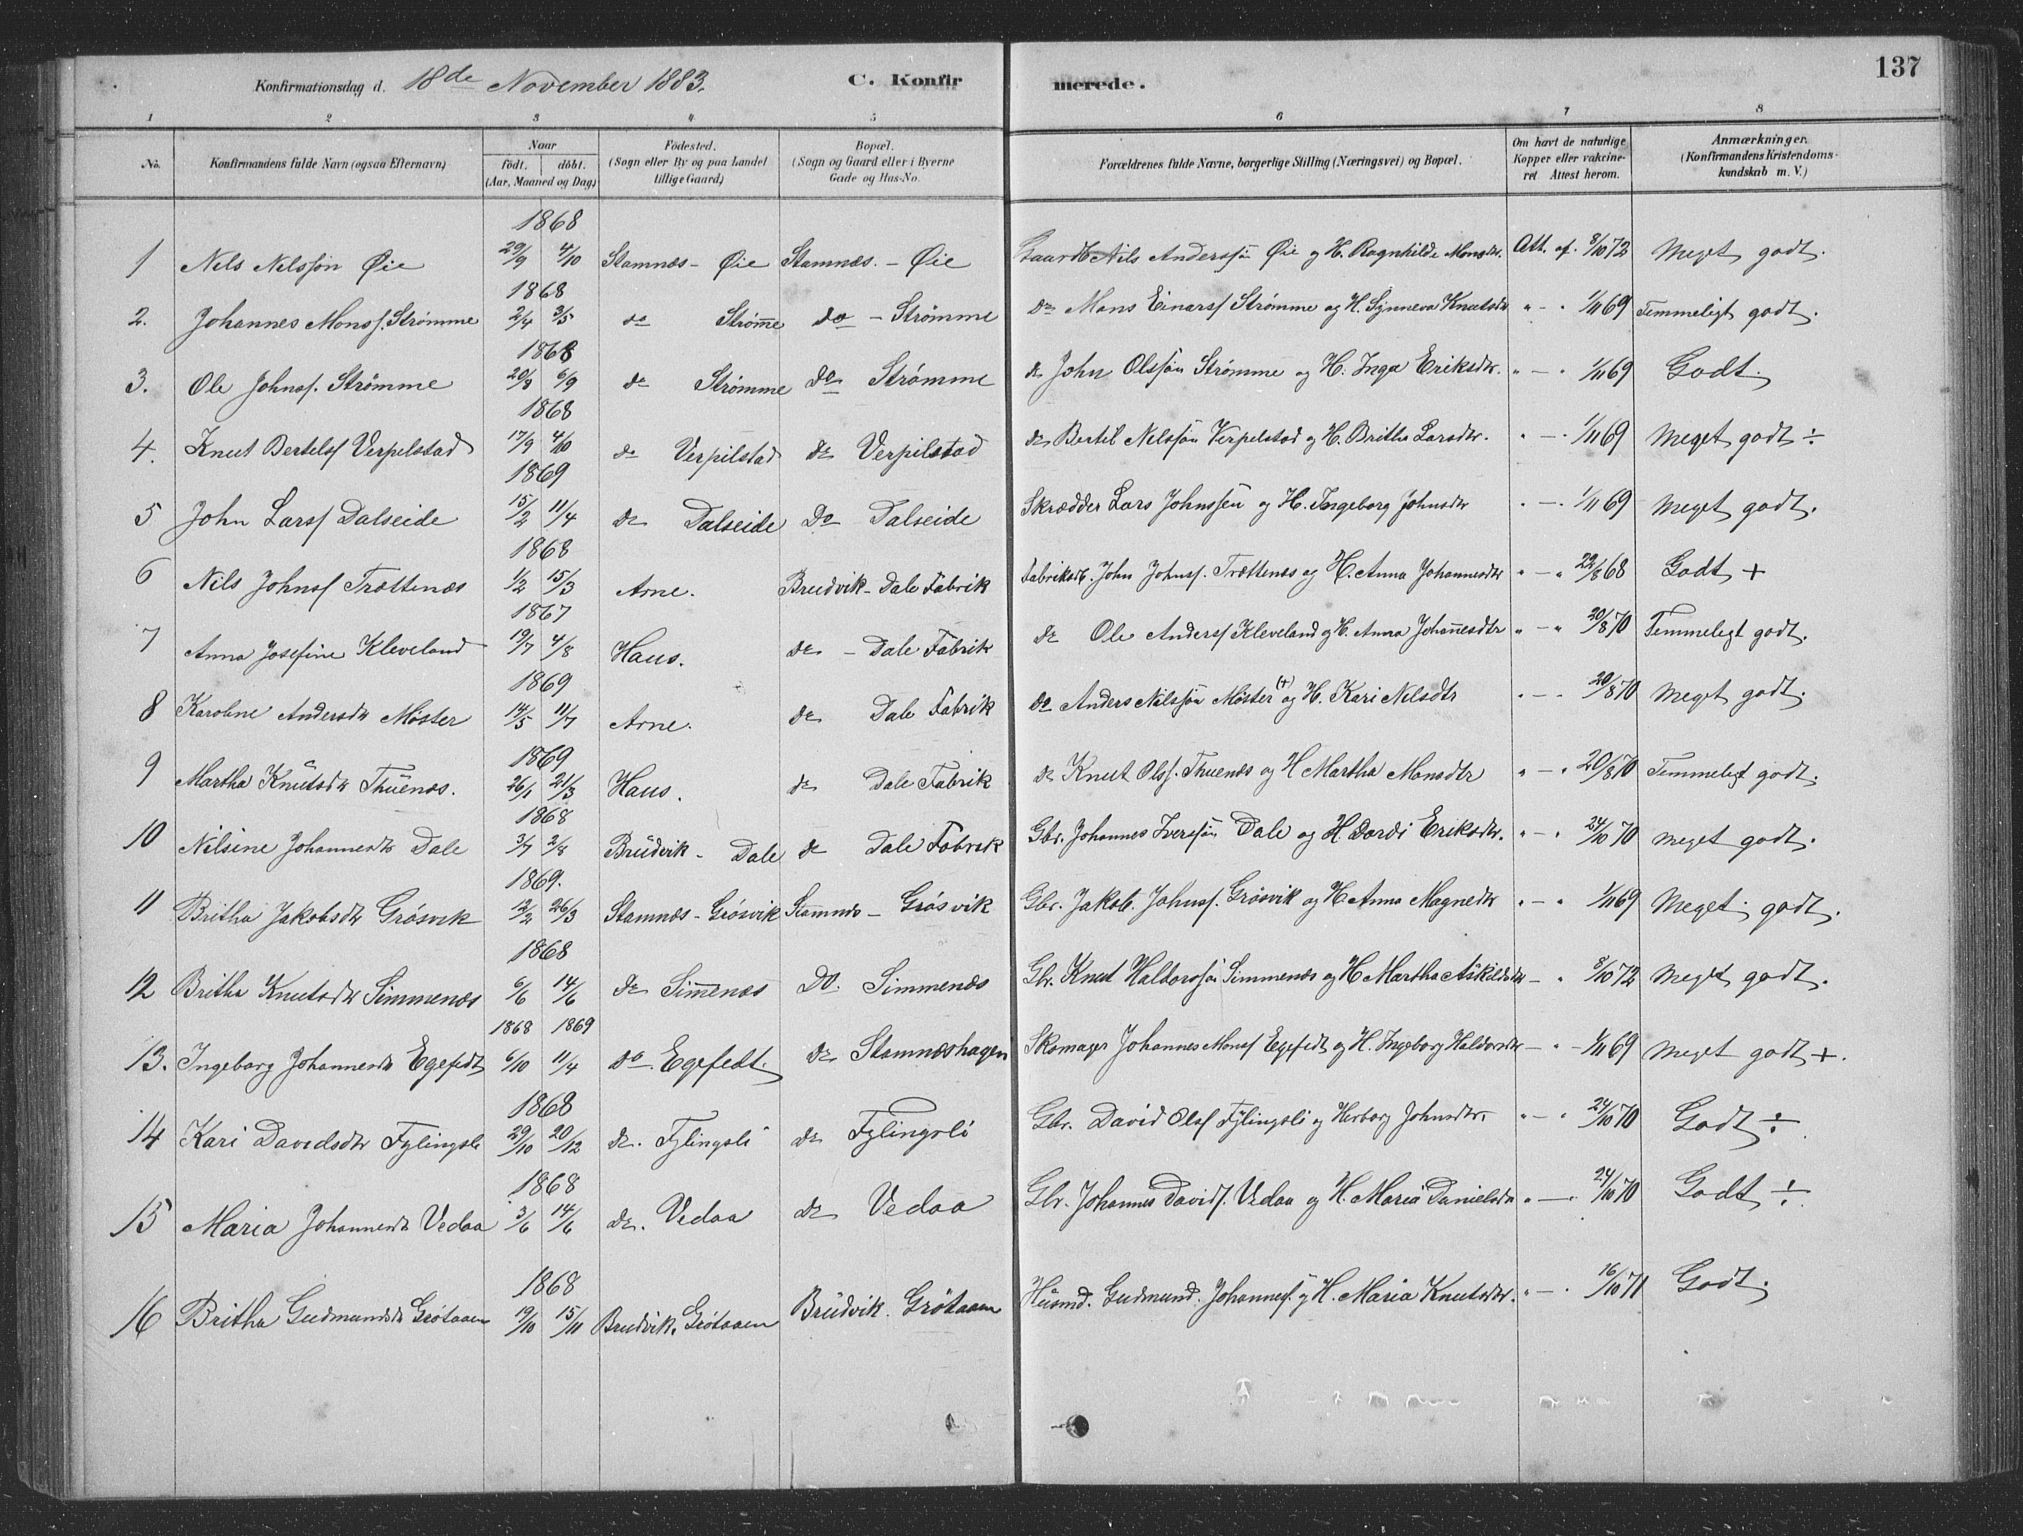 Konfirmationsdag d. 18de November 1883. C. Konfirmerede. 137
1 2 3 4 5 6 7 8
No. Konfirmandens fulde Navn (ogsaa Efternavn) Naar født. døbt. (Aar, Maaned og Dag) Födested. (Sogn eller By og paa Landet tillige Gaard) Bopæl. (Sogn og Gaard eller i Byerne Gade og Hus-No. Forældrenes fulde Navne, borgerlige Stilling (Næringsvei) og Bopæl. Om havt de naturlige Kopper eller vakcineret Attest herom. Anmærkninger. (Konfirmandens Kristendomskundskab m. V.)
1868
1 Nils Nilssøn Øie 29/9 4/10 Stamnæs - Øie Stamnæs. - Øie Gaardb. Nils Anderssøn Øie og H. Ragnhilde Monsdtr. Att. af. 8/10 72 Meget godt.
1868
2. Johannes Monsf. Strømme 2/4 3/5 do Strømme do - Strømme do Mons Einarsf Strømme og H. Synneva Knutsdtr " - " 1/11 69 Temmeligt godt.
1868
3. Ole Johnsf. Strømme 20/8 6/9 do Strømme do Strømme do John Olssøn Strømme og H. Inga Eriksdtr. " - " 1/11 69 Godt.
1868
4. Knut Bertelsf Verpelstad 17/9 4/10 do Verpilstad do Verpilstad do Bertil Nilssøn Verpelstad og H. Britha Larsdtr. " - " 1/11 69 Meget godt ÷
1869
5 John Larsf Dalseide 15/2 11/4 do Dalseide Do Dalseide Skrædder Lars Johnssøn og H. Ingeborg Johnsdtr " - " 1/11 69 Meget godt.
1868
6 Nils Johnsf Trættenæs 1/2 15/3 Arne. Brudvik - Dale Fabrik Fabriksarb. John Johnsf. Trættenæs og H. Anna Johannesdtr " - " 22/8 68 Godt +
1867
7 Anna Josefine Kleveland 19/7 4/8 Haus. do - Dale Fabrik do Ole Andersf Kleveland og H. Anna Johannesdtr " - " 20/8 70 Temmeligt godt.
1869
8 Karoline Andersdtr Møster 14/5 11/7 Arne. do Dale Fabrik do Anders Nilssøn Møster (+) og H. Kari Nilsdtr " - " 20/8 70 Meget godt.
1869
9 Martha Knutsdtr Thuenæs. 26/1 21/3 Haus. do Dale Fabrik do Knut Olsf. Thuenæs og H Martha Monsdtr " - " 20/8 70 Temmeligt godt.
1868
10 Nilsine Johannesdtr Dale 3/7 2/8 Brudvik - Dale do Dale Fabrik Gbr. Johannes Iverssøn Dale og H Dordi Eriksdtr. " - " 24/10 70 Meget godt.
1869.
11 Britha Jakobsdtr Grøsvik 12/2 26/3 Stamnæs - Grøsvik Stamnæs - Grøsvik Gbr. Jakob. Johnsf. Grøsvik og H Anna Magnedtr " - " 1/11 69 Meget godt.
1868
12 Britha Knutsdtr Simmenæs 6/6 14/6 do Simmenæs Do. Simmenæs Gbr. Knut Haldorssøn Simmenæs og H Martha Askildsdtr - " 8/10 72 Meget godt.
1868 1869
13. Ingeborg Johannesdtr Egefedt 6/10 11/4 do. Egefedt. do Stamneshagen Skomager Johannes Monsf Egefedt og H. Ingeborg Haldorsdtr - " - 1/11 69 Meget godt +.
1868
14 Kari Davidsdtr Fylingsli 29/10 20/12 do. Fylingsli do Fylingsli Gbr. David Olsf Fylingsli og Herborg Johnsdtr. " - " 24/10 70 Godt ÷
1868
15 Maria Johannesdtr Vedaa 3/6 14/6 do. Vedaa do Vedaa Gbr. Johannes Davidsf. Vedaa og H. Maria Danielsdtr " - " 24/10 70 Godt ÷
1868
16 Britha Gudmundsdtr Grøtaaen 19/10 15/11 Brudvik. Grøtaaen Brudvik. Grøtaaen Husmd. Gudmund. Johannesf. og H. Maria Knutsdtr. " - " 16/10 71 Godt.